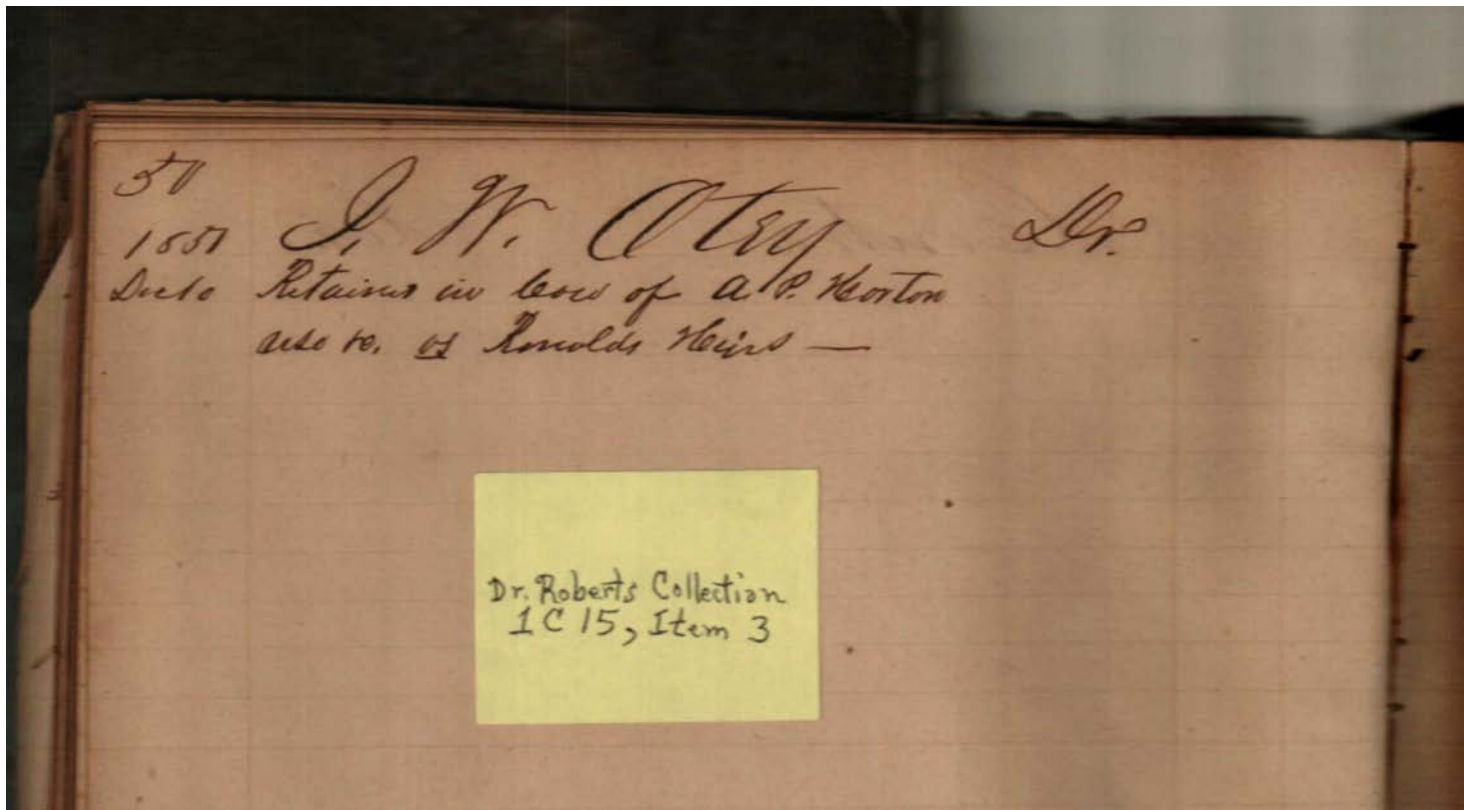 50
1851 J. W. Otey Dr.
Dec 10 Retainer in Case of A. P. Horton
use &c. vs Heirs —
Dr. Roberts Collection
1 C 15, Item 3